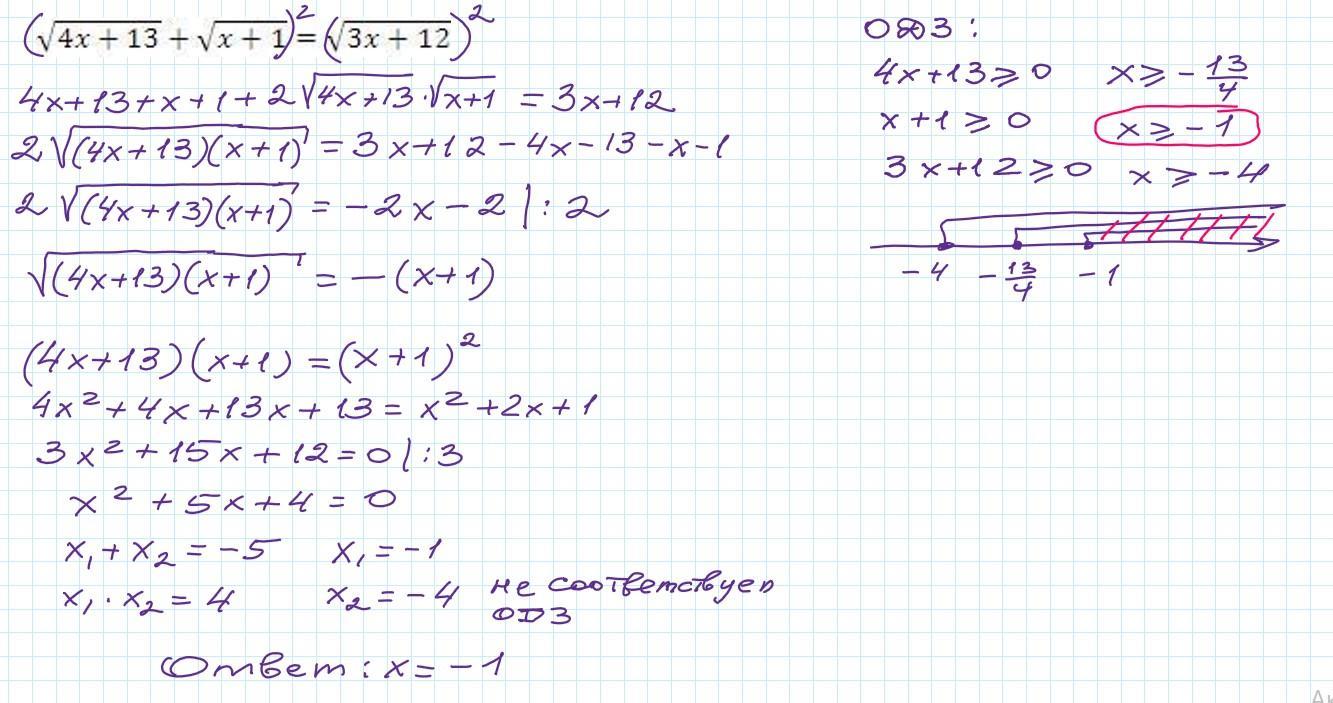 (√4x + 13 + √x + 1)² = (√3x + 12)²
4x+13+x+1+2√4x+13·√x+1 = 3x+12
2√(4x+13)(x+1) = 3x+12-4x-13-x-1
2√(4x+13)(x+1) = -2x-2 |:2
√(4x+13)(x+1) = -(x+1)
(4x+13)(x+1) = (x+1)²
4x²+4x+13x+13 = x²+2x+1
3x²+15x+12=0 |:3
x²+5x+4=0
x₁+x₂=-5 x₁=-1
x₁·x₂=4 x₂=-4 не соответствует
ОДЗ
Ответ: x=-1
ОДЗ:
4x+13≥0 x≥-13/4
x+1≥0 x≥-1
3x+12≥0 x≥-4
-4 -13/4 -1